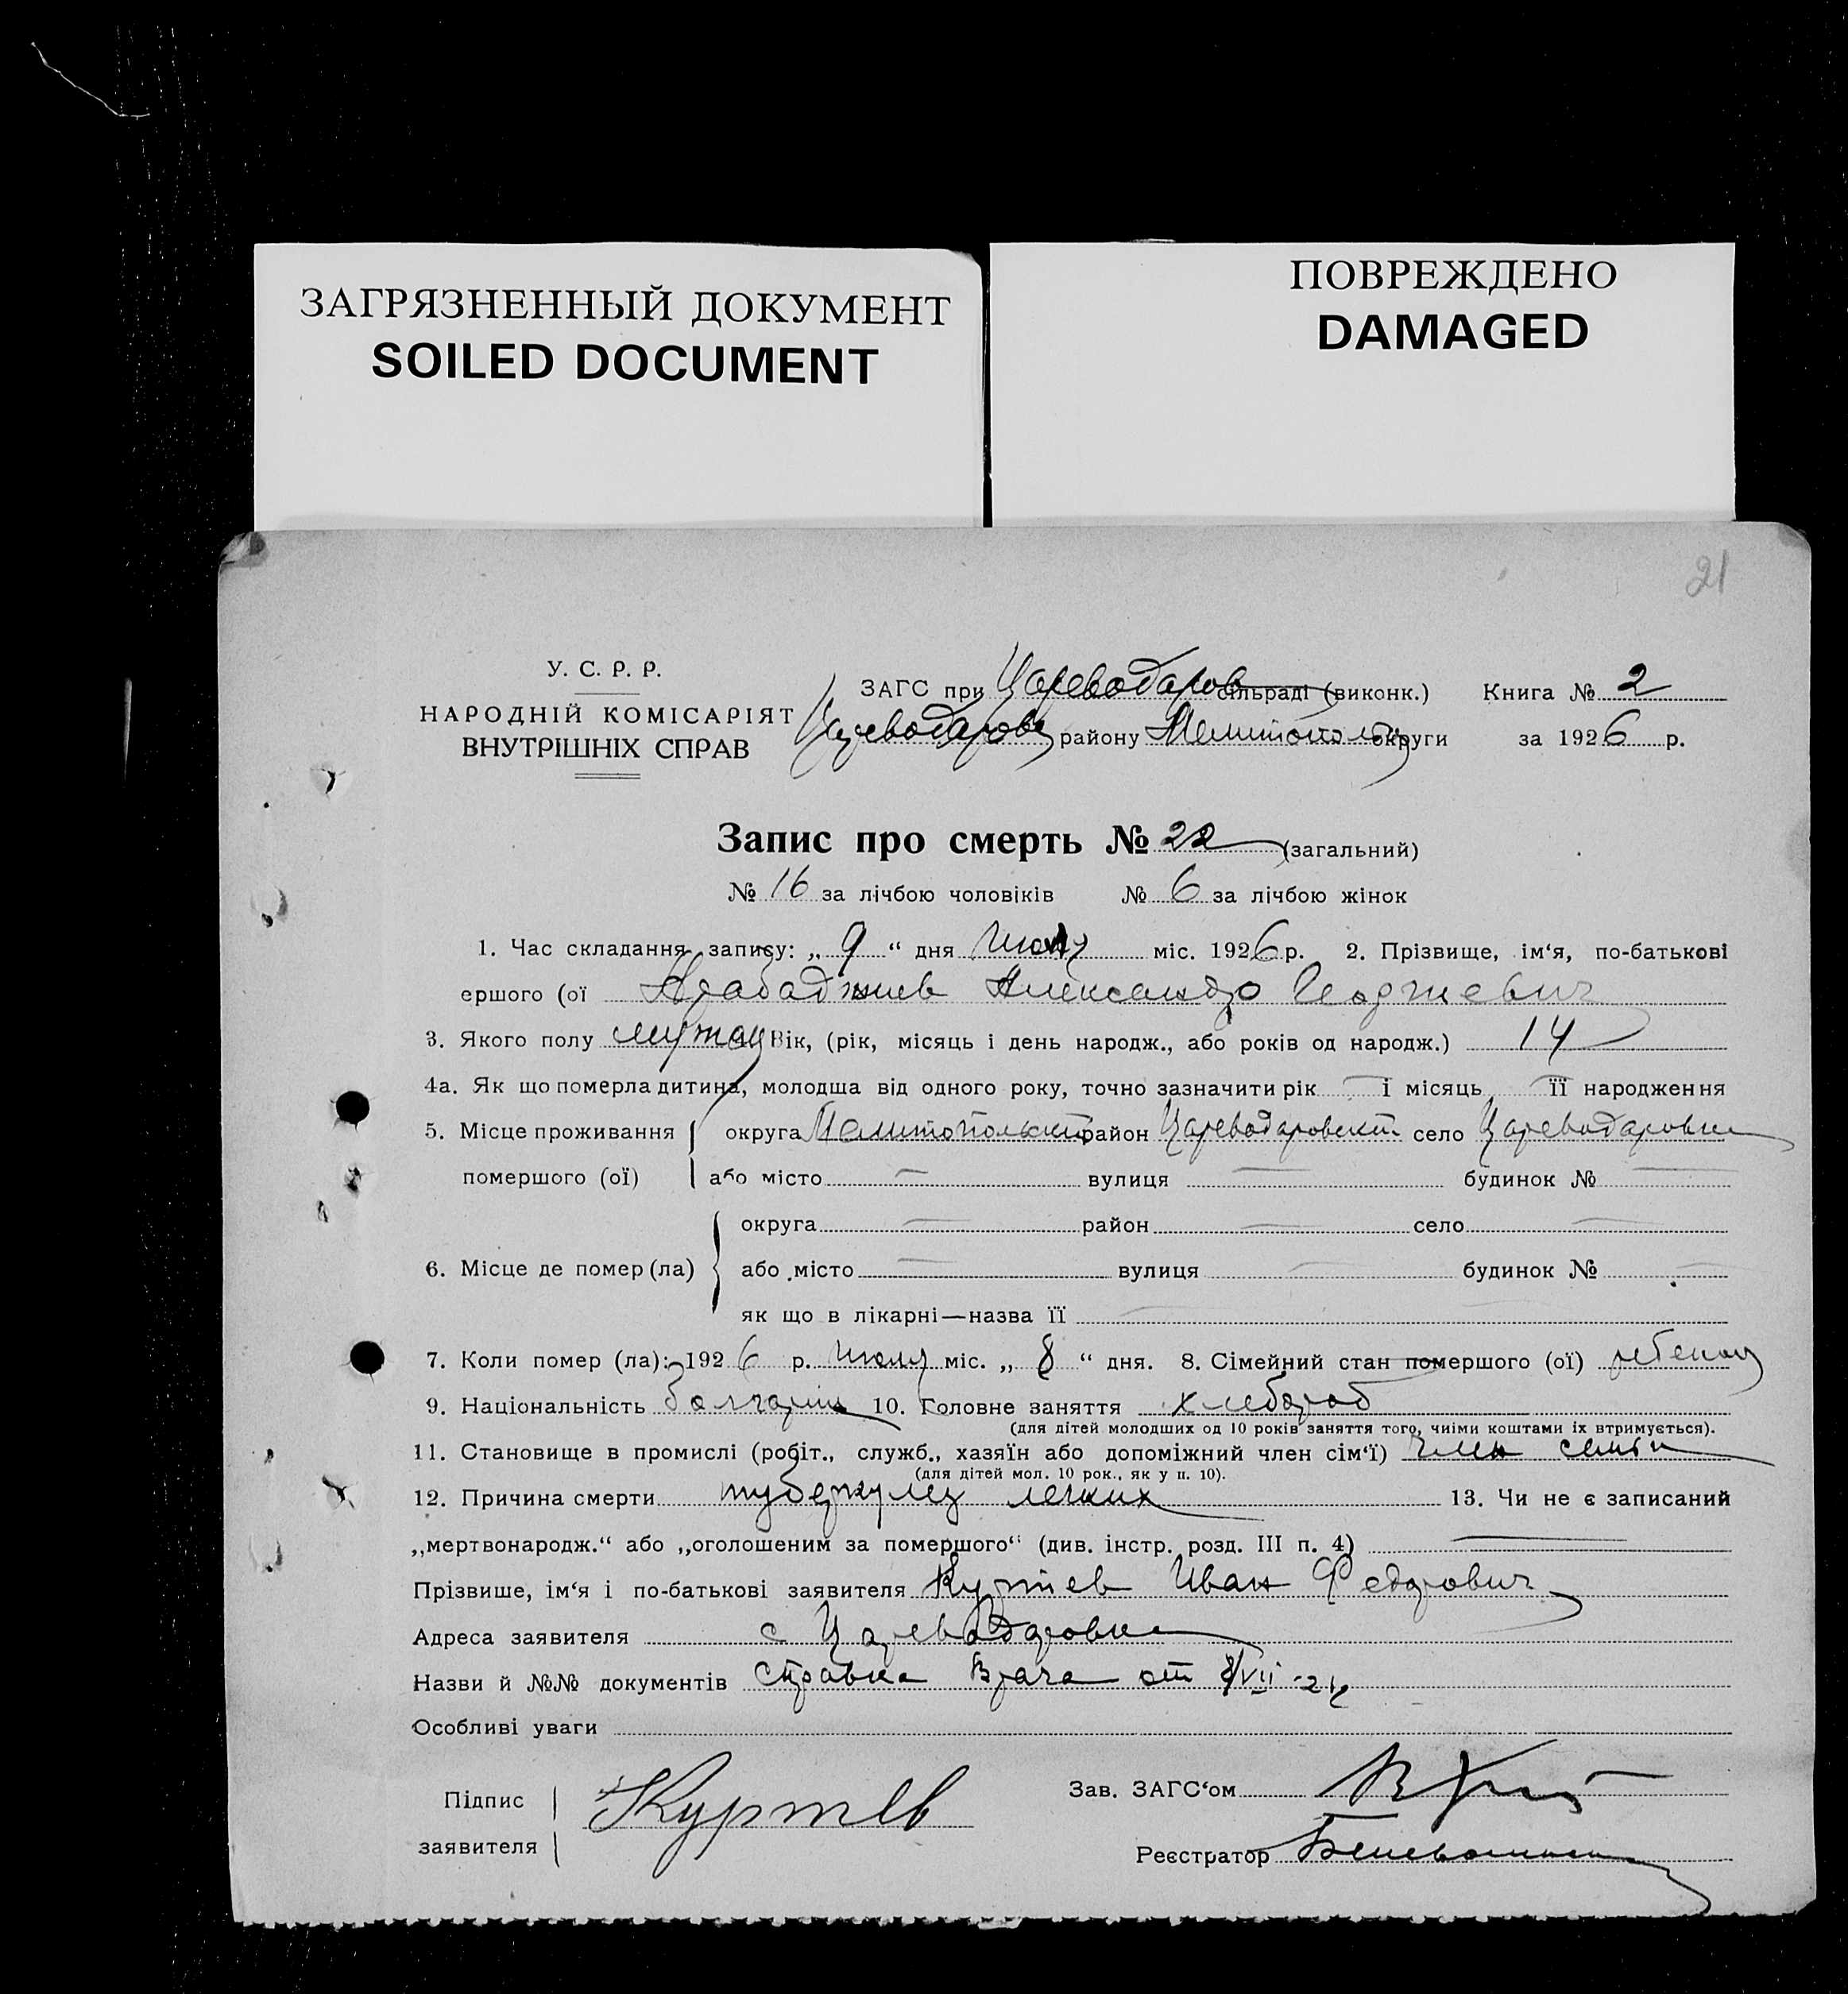 ЗАГРЯЗНЕННЫЙ ДОКУМЕНТ
SOILED DOCUMENT
ПОВРЕЖДЕНО
DAMAGED
21
У. С. Р. Р.
НАРОДНІЙ КОМІСАРІЯТ
ВНУТРІШНІХ СПРАВ
ЗАГС при Цареводаров сільраді (виконк.) Книга № 2
Цареводаров району Мелитополь округи за 1926 р.
Запис про смерть № 22 (загальний)
№ 16 за лічбою чоловіків № 6 за лічбою жінок
1. Час складання запису: „ 9 “ дня Июля міс. 1926 р. 2. Прізвище, ім‘я, по-батькові
ершого (ої Арабаджиев Александр Георгиевич
3. Якого полу мужск Вік, (рік, місяць і день народж., або років од народж.) 14
4а. Як що померла дитина, молодша від одного року, точно зазначити рік — і місяць — її народження
5. Місце проживання округа Мелитопольский район Цареводаровский село Цареводаровка
помершого (ої) або місто — вулиця — будинок № —
округа — район — село —
6. Місце де помер (ла) або місто — вулиця — будинок № —
як що в лікарні—назва її —
7. Коли помер (ла): 1926 р. июля міс. „ 8 “ дня. 8. Сімейний стан помершого (ої) ребенок
9. Національність болгарин 10. Головне заняття хлебороб
(для дітей молодших од 10 років заняття того, чиїми коштами їх втримується).
11. Становище в промислі (робіт., служб., хазяїн або допоміжний член сім‘ї) член семьи
(для дітей мол. 10 рок., як у п. 10).
12. Причина смерти туберкулез легких 13. Чи не є записаний
„мертвонародж.“ або „оголошеним за помершого“ (див. інстр. розд. III п. 4) —
Прізвише, ім‘я і по-батькові заявителя Куртев Иван Федорович
Адреса заявителя с Цареводаровка
Назви й №№ документів Справка Врача от 8/VII-26
Особливі уваги
Підпис
заявителя
Куртев
Зав. ЗАГС‘ом
Реєстратор